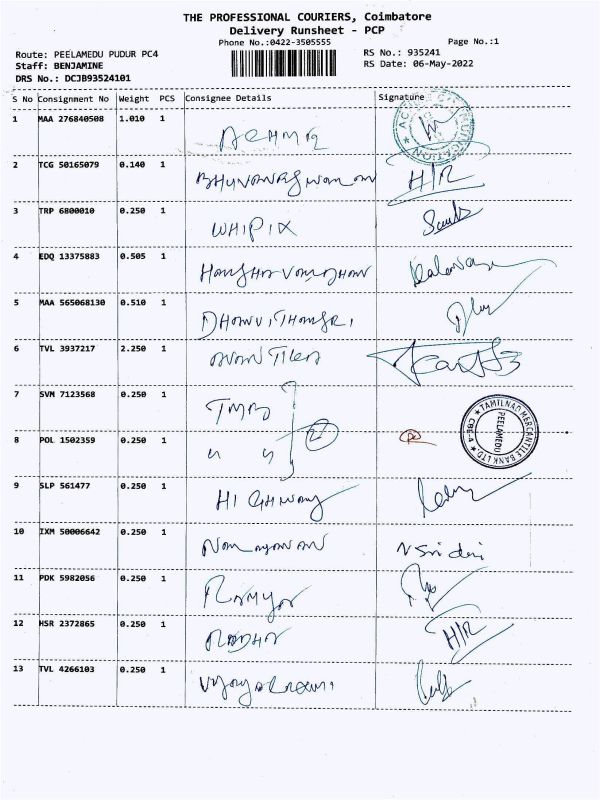 THE PROFESSIONAL COURIERS, Coimbatore
Delivery Runsheet - PCP
Phone No.:0422-3505555
Page No.:1
Route: PEELAMEDU PUDUR PC4
RS No.: 935241
Staff: BENJAMINE
RS Date: 06-May-2022
DRS No.: DCJB93524101
S No Consignment No Weight PCS Consignee Details Signature
1 MAA 276840508 1.010 1
2 TCG 50165079 0.140 1 H/R
3 TRP 6800010 0.250 1 WHIPIX
4 EDQ 13375883 0.505 1
5 MAA 565068130 0.510 1
6 TVL 3937217 2.250 1
7 SVM 7123568 0.250 1 TMB
TAMILNAD MERCANTILE BANK LTD.
PEELAMEDU
CBE-4
8 POL 1502359 0.250 1 " "
9 SLP 561477 0.250 1 HIGHWAY
10 IXM 50006642 0.250 1 NARAYANAN
11 PDK 5982056 0.250 1 RAMYA
12 HSR 2372865 0.250 1 RADHA H/R
13 TVL 4266103 0.250 1